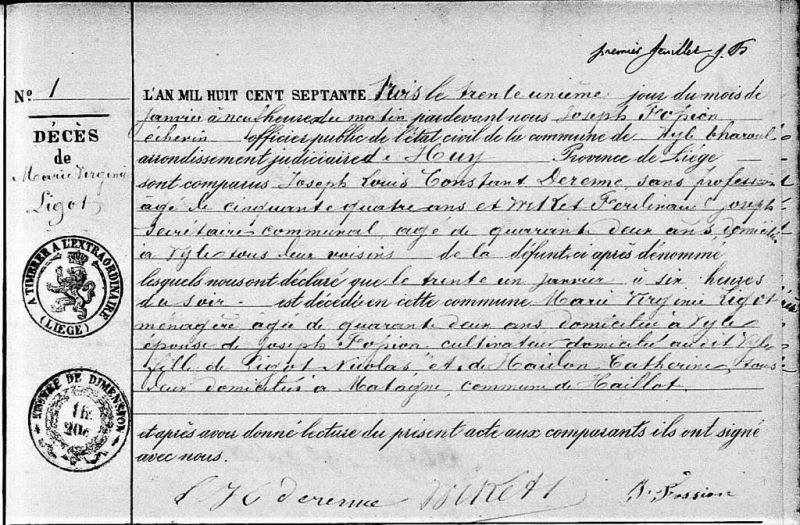 premier feuillet J. F.
N° 1
DÉCÈS
de
Marie Virginie
Ligot
A TIMBRER A L'EXTRAORDINAIRE
(LIÈGE)
TIMBRE DE DIMENSION
1 fr.
20c
L'AN MIL HUIT CENT SEPTANTE trois le trente unième jour du mois de
Janvier à neuf heures du matin pardevant nous Joseph Fossion
échevin officier public de l'état civil de la commune de Vyle Tharoul
arrondissement judiciaire de Huy Province de Liége
sont comparus Joseph Louis Constant Derenne, sans profession
agé de cinquante quatre ans et Wilket Ferdinand Joseph
Secrétaire communal, agé de quarante deux ans, domiciliés
à Vyle tous deux voisins de la défunte ci après dénommé
lesquels nous ont déclaré que le trente un janvier à six heures
du soir est décédée en cette commune Marie Virginie Ligot
ménagère agée de quarante deux ans domiciliée à Vyle
épouse de Joseph Fossion cultivateur domicilié audit Vyle
fille de Ligot Nicolas et de Haidon Catherine, tous
deux domiciliés à Matagne, commune de Haillot.
et après avoir donné lecture du présent acte aux comparants ils ont signé
avec nous.
derenne Wilket J. Fossion